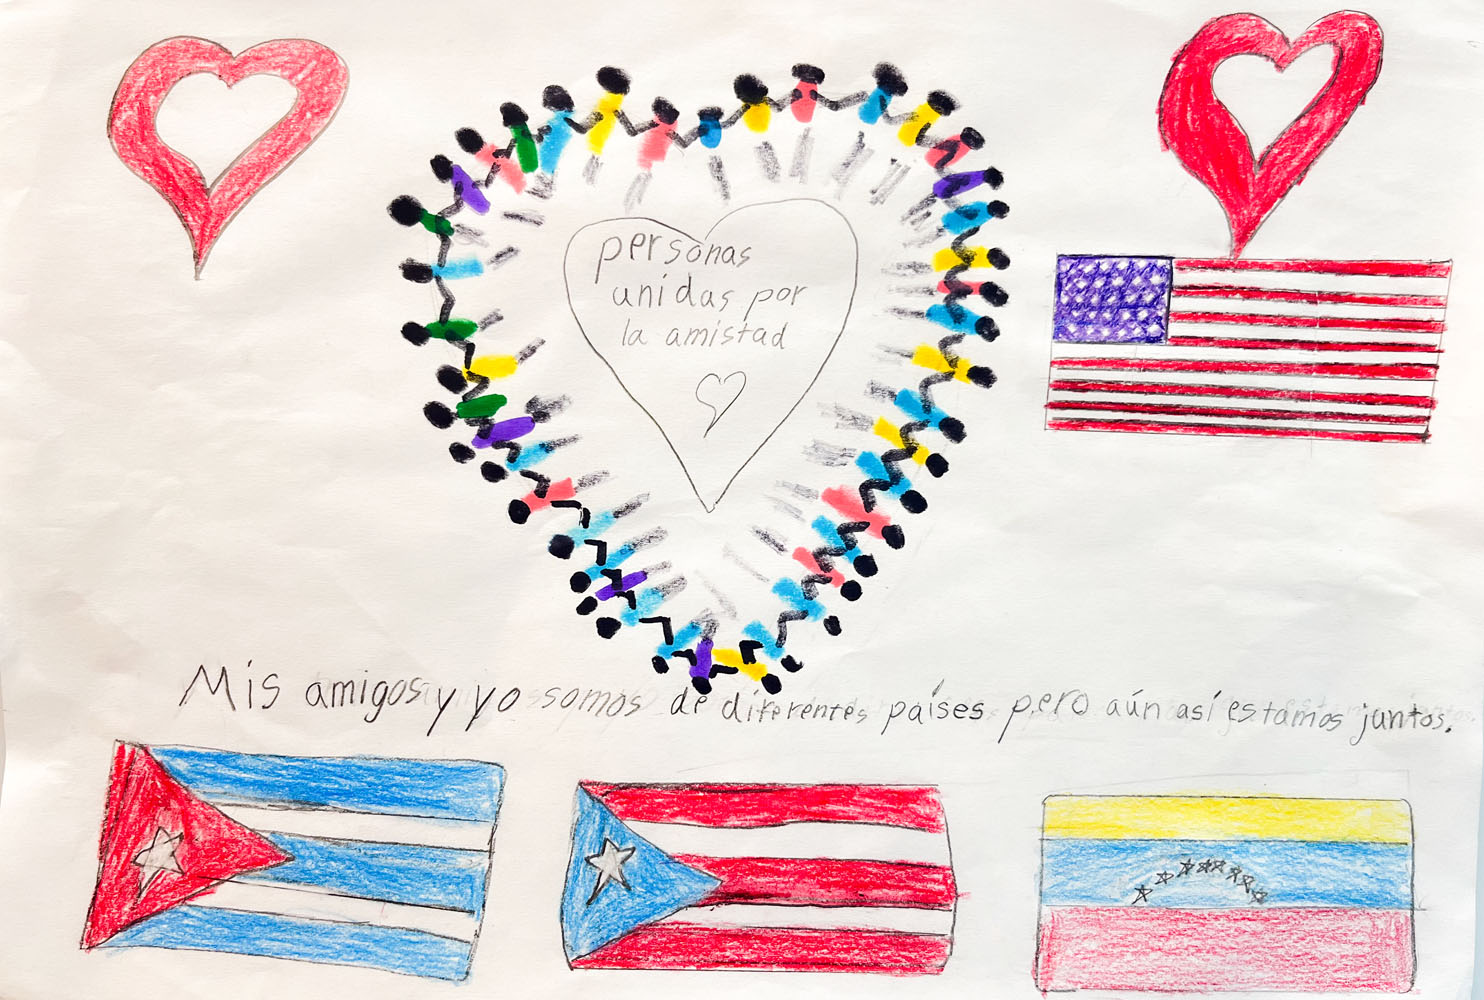 personas
unidas por
la amistad
Mis amigos y yo somos de diferentes países pero aún así estamos juntos.